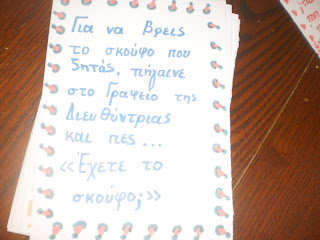 Για να βρεις
το σκούφο που
ζητάς, πήγαινε
στο Γραφείο της
Διευθύντριας
και πες...
«Έχετε το
σκούφο;»